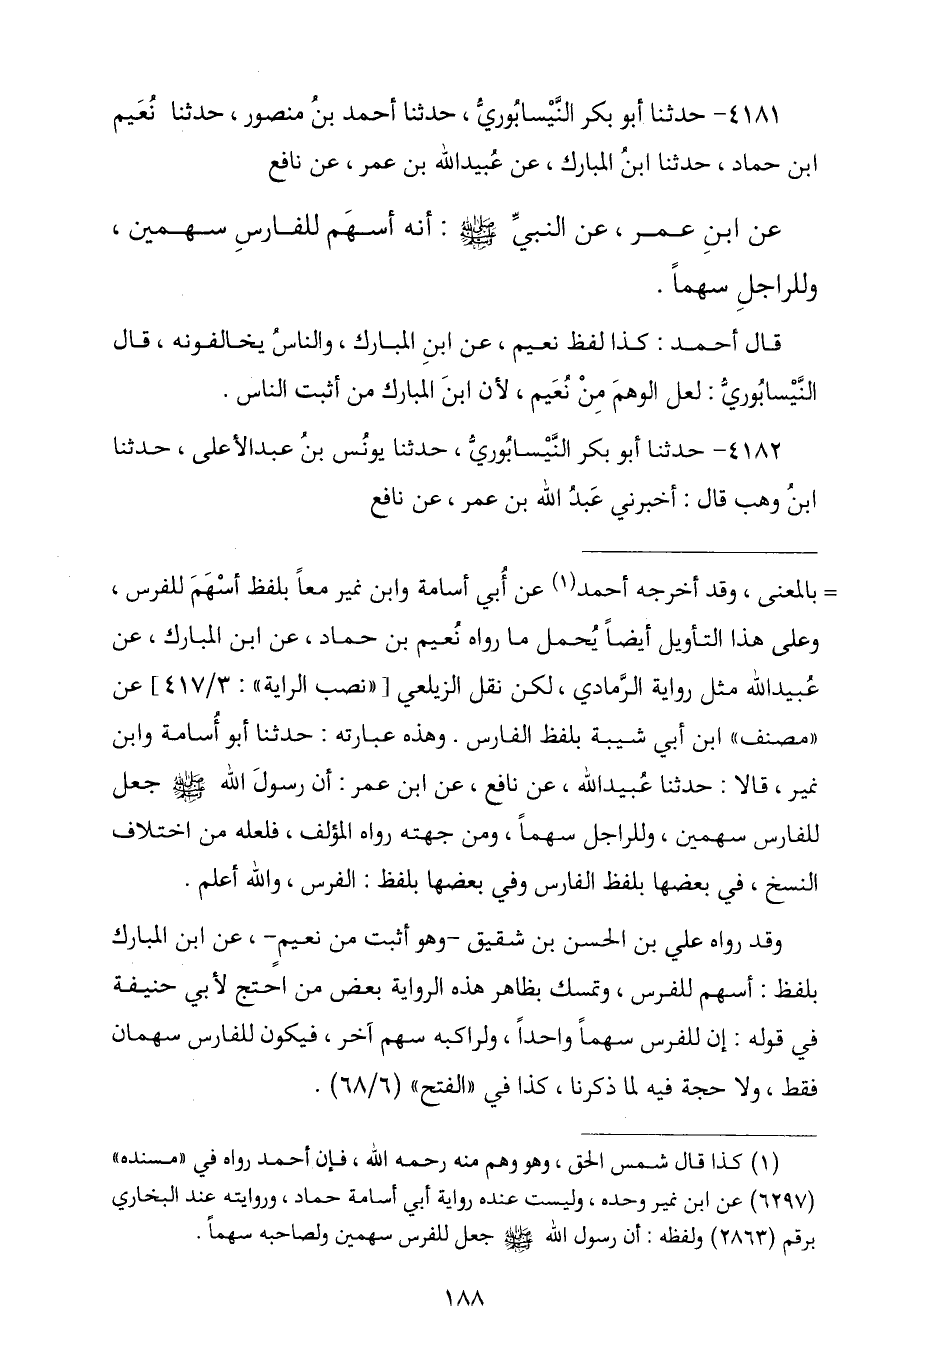 ٤١٨١- حدثنا أبو بكر النَّيْسابُوريُّ ، حدثنا أحمد بنُ منصور ، حدثنا نُعَيم
ابن حماد ، حدثنا ابنُ المبارك ، عن عُبيدالله بن عمر ، عن نافع
عن ابنِ عمر ، عن النبيِّ ﷺ : أنه أسهَم للفارسِ سهمين ،
وللراجلِ سهماً .
قال أحمد : كذا لفظ نعيم ، عن ابنِ المبارك ، والناسُ يخالفونه ، قال
النَّيْسابُوريُّ : لعل الوهمَ مِنْ نُعَيم ، لأن ابنَ المبارك من أثبت الناس .
٤١٨٢- حدثنا أبو بكر النَّيْسابُوريُّ ، حدثنا يونُس بنُ عبدالأعلى ، حدثنا
ابنُ وهب قال : أخبرني عَبدُ الله بن عمر ، عن نافع
= بالمعنى ، وقد أخرجه أحمد(١) عن أُبي أسامة وابن نمير معاً بلفظ أسْهَمَ للفرس ،
وعلى هذا التأويل أيضاً يُحمل ما رواه نُعيم بن حماد ، عن ابن المبارك ، عن
عُبيدالله مثل رواية الرَّمادي ، لكن نقل الزيلعي [«نصب الراية» : ٤١٧/٣] عن
«مصنف» ابن أبي شيبة بلفظ الفارس . وهذه عبارته : حدثنا أبو أُسامة وابن
نمير ، قالا : حدثنا عُبيدالله ، عن نافع ، عن ابن عمر : أن رسولَ الله ﷺ جعل
للفارس سهمين ، وللراجل سهماً ، ومن جهته رواه المؤلف ، فلعله من اختلاف
النسخ ، في بعضها بلفظ الفارس وفي بعضها بلفظ : الفرس ، والله أعلم .
وقد رواه علي بن الحسن بن شقيق -وهو أثبت من نعيم- ، عن ابن المبارك
بلفظ : أسهم للفرس ، وتمسك بظاهر هذه الرواية بعض من احتج لأبي حنيفة
في قوله : إن للفرس سهماً واحداً ، ولراكبه سهم آخر ، فيكون للفارس سهمان
فقط ، ولا حجة فيه لما ذكرنا ، كذا في «الفتح» (٦٨/٦) .
(١) كذا قال شمس الحق ، وهو وهم منه رحمه الله ، فإن أحمد رواه في «مسنده»
(٦٢٩٧) عن ابن نمير وحده ، وليست عنده رواية أبي أسامة حماد ، وروايته عند البخاري
برقم (٢٨٦٣) ولفظه : أن رسول الله ﷺ جعل للفرس سهمين ولصاحبه سهماً .
١٨٨